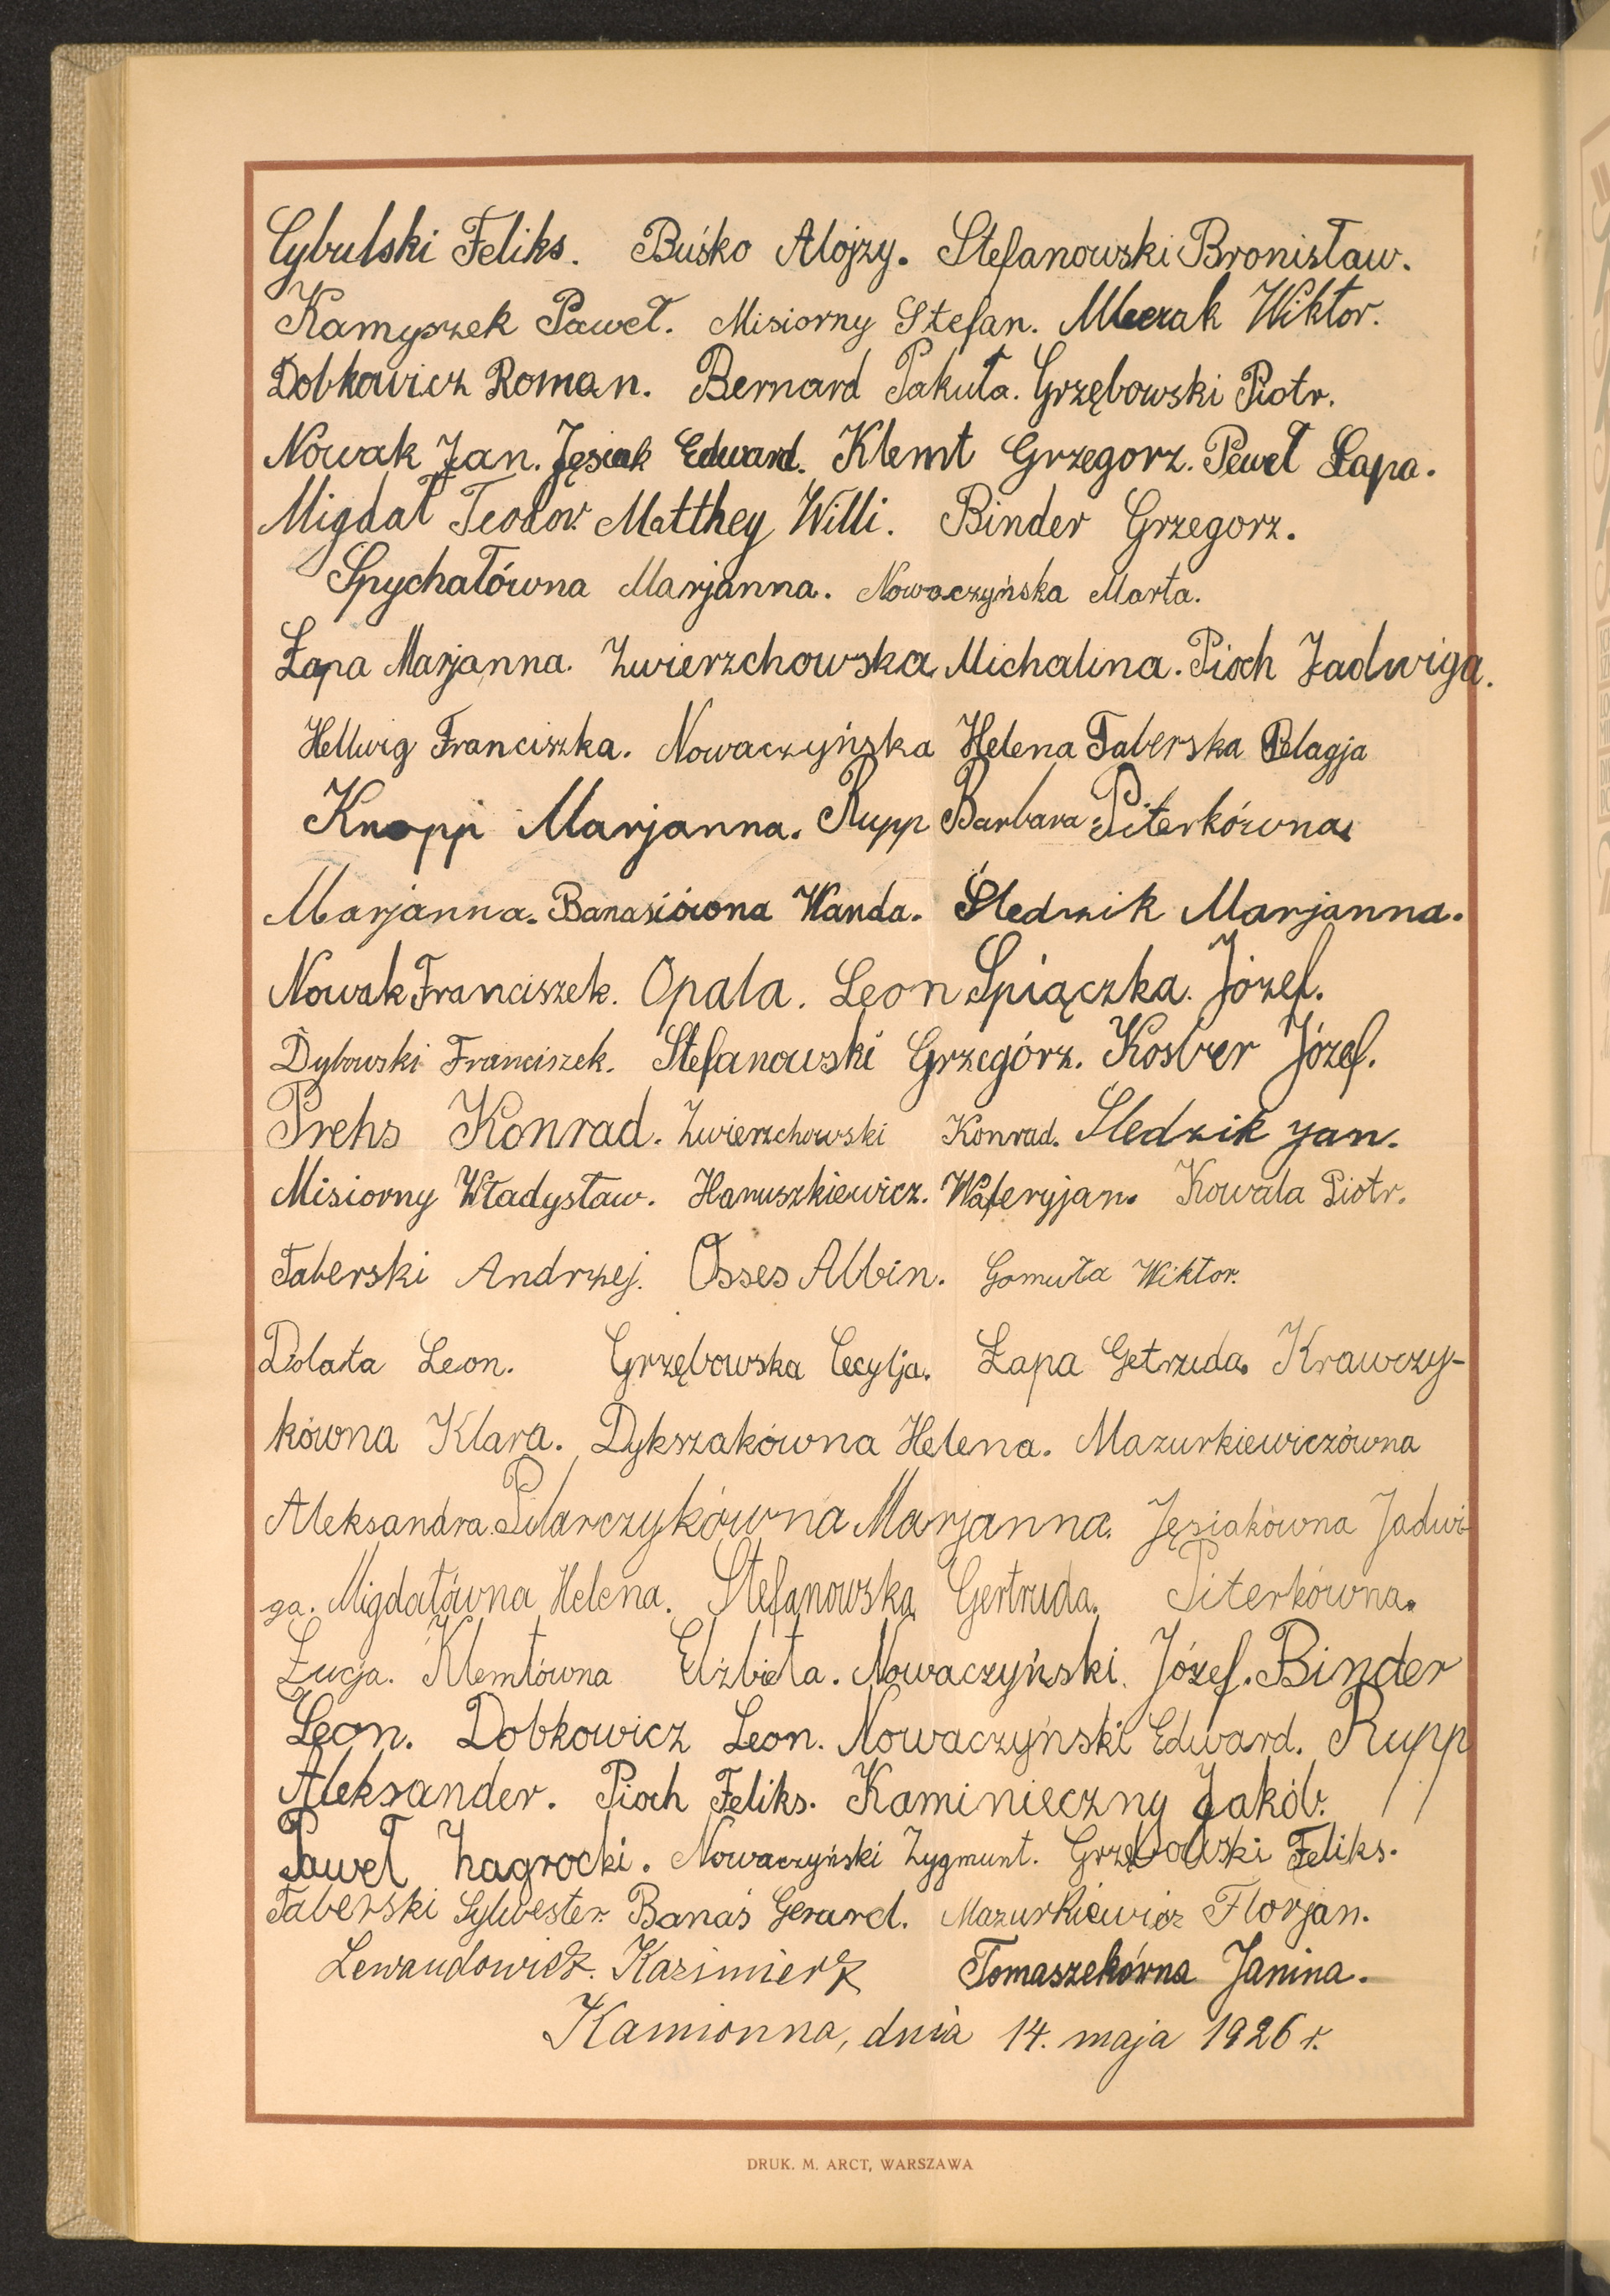 Cybulski Feliks. Buśko Alojzy. Stefanowski Bronisław.
Kamyszek Paweł. Misiorny Stefan. Mleczak Wiktor.
Dobkowicz Roman. Bernard Pakuła. Grzębowski Piotr.
Nowak Jan. Jęsiak Edward. Klemt Grzegorz. Peweł Łapa.
Migdał Teodor. Matthey Willi. Binder Grzegorz.
Spychałówna Marjanna. Nowaczyńska Marta.
Łapa Marjanna. Zwierzchowska Michalina. Pioch Jadwiga.
Hellwig Franciszka. Nowaczyńska Helena Taberska Pelagja
Knopp Marjanna. Rupp Barbara. Piterkówna
Marjanna. Banasiówna Wanda. Śledzik Marjanna.
Nowak Franciszek. Opala. Leon Śpiączka. Józef.
Dybowski Franciszek. Stefanowski Grzegórz. Kosber Józef.
Prehs Konrad. Zwierzchowski Konrad. Śledzik Jan.
Misiorny Władysław. Hanuszkiewicz. Waleryjan. Kowala Piotr.
Taberski Andrzej. Osses Albin. Gomuła Wiktor.
Dolata Leon. Grzębowska Cecylja. Łapa Getruda. Krawczy-
kówna Klara. Dykszakówna Helena. Mazurkiewiczówna
Aleksandra. Pilarczykówna Marjanna. Jęsiakówna Jadwi-
ga. Migdałówna Helena. Stefanowska Gertruda. Piterkówna.
Łucja. Klemtówna Elżbieta. Nowaczyński. Józef. Binder
Leon. Dobkowicz Leon. Nowaczyński Edward. Rupp
Aleksander. Pioch Feliks. Kaminieczny Jakób.
Paweł Zagrocki. Nowaczyński Zygmunt. Grzębowski Feliks.
Taberski Sylwester. Banaś Gerard. Mazurkiewicz Florjan.
Lewandowicz. Kazimierz Tomaszekórna Janina.
Kamionna, dnia 14. maja 1926 r.
DRUK. M. ARCT, WARSZAWA